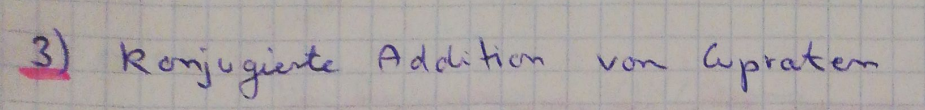 3) Konjugierte Addition von Cupraten